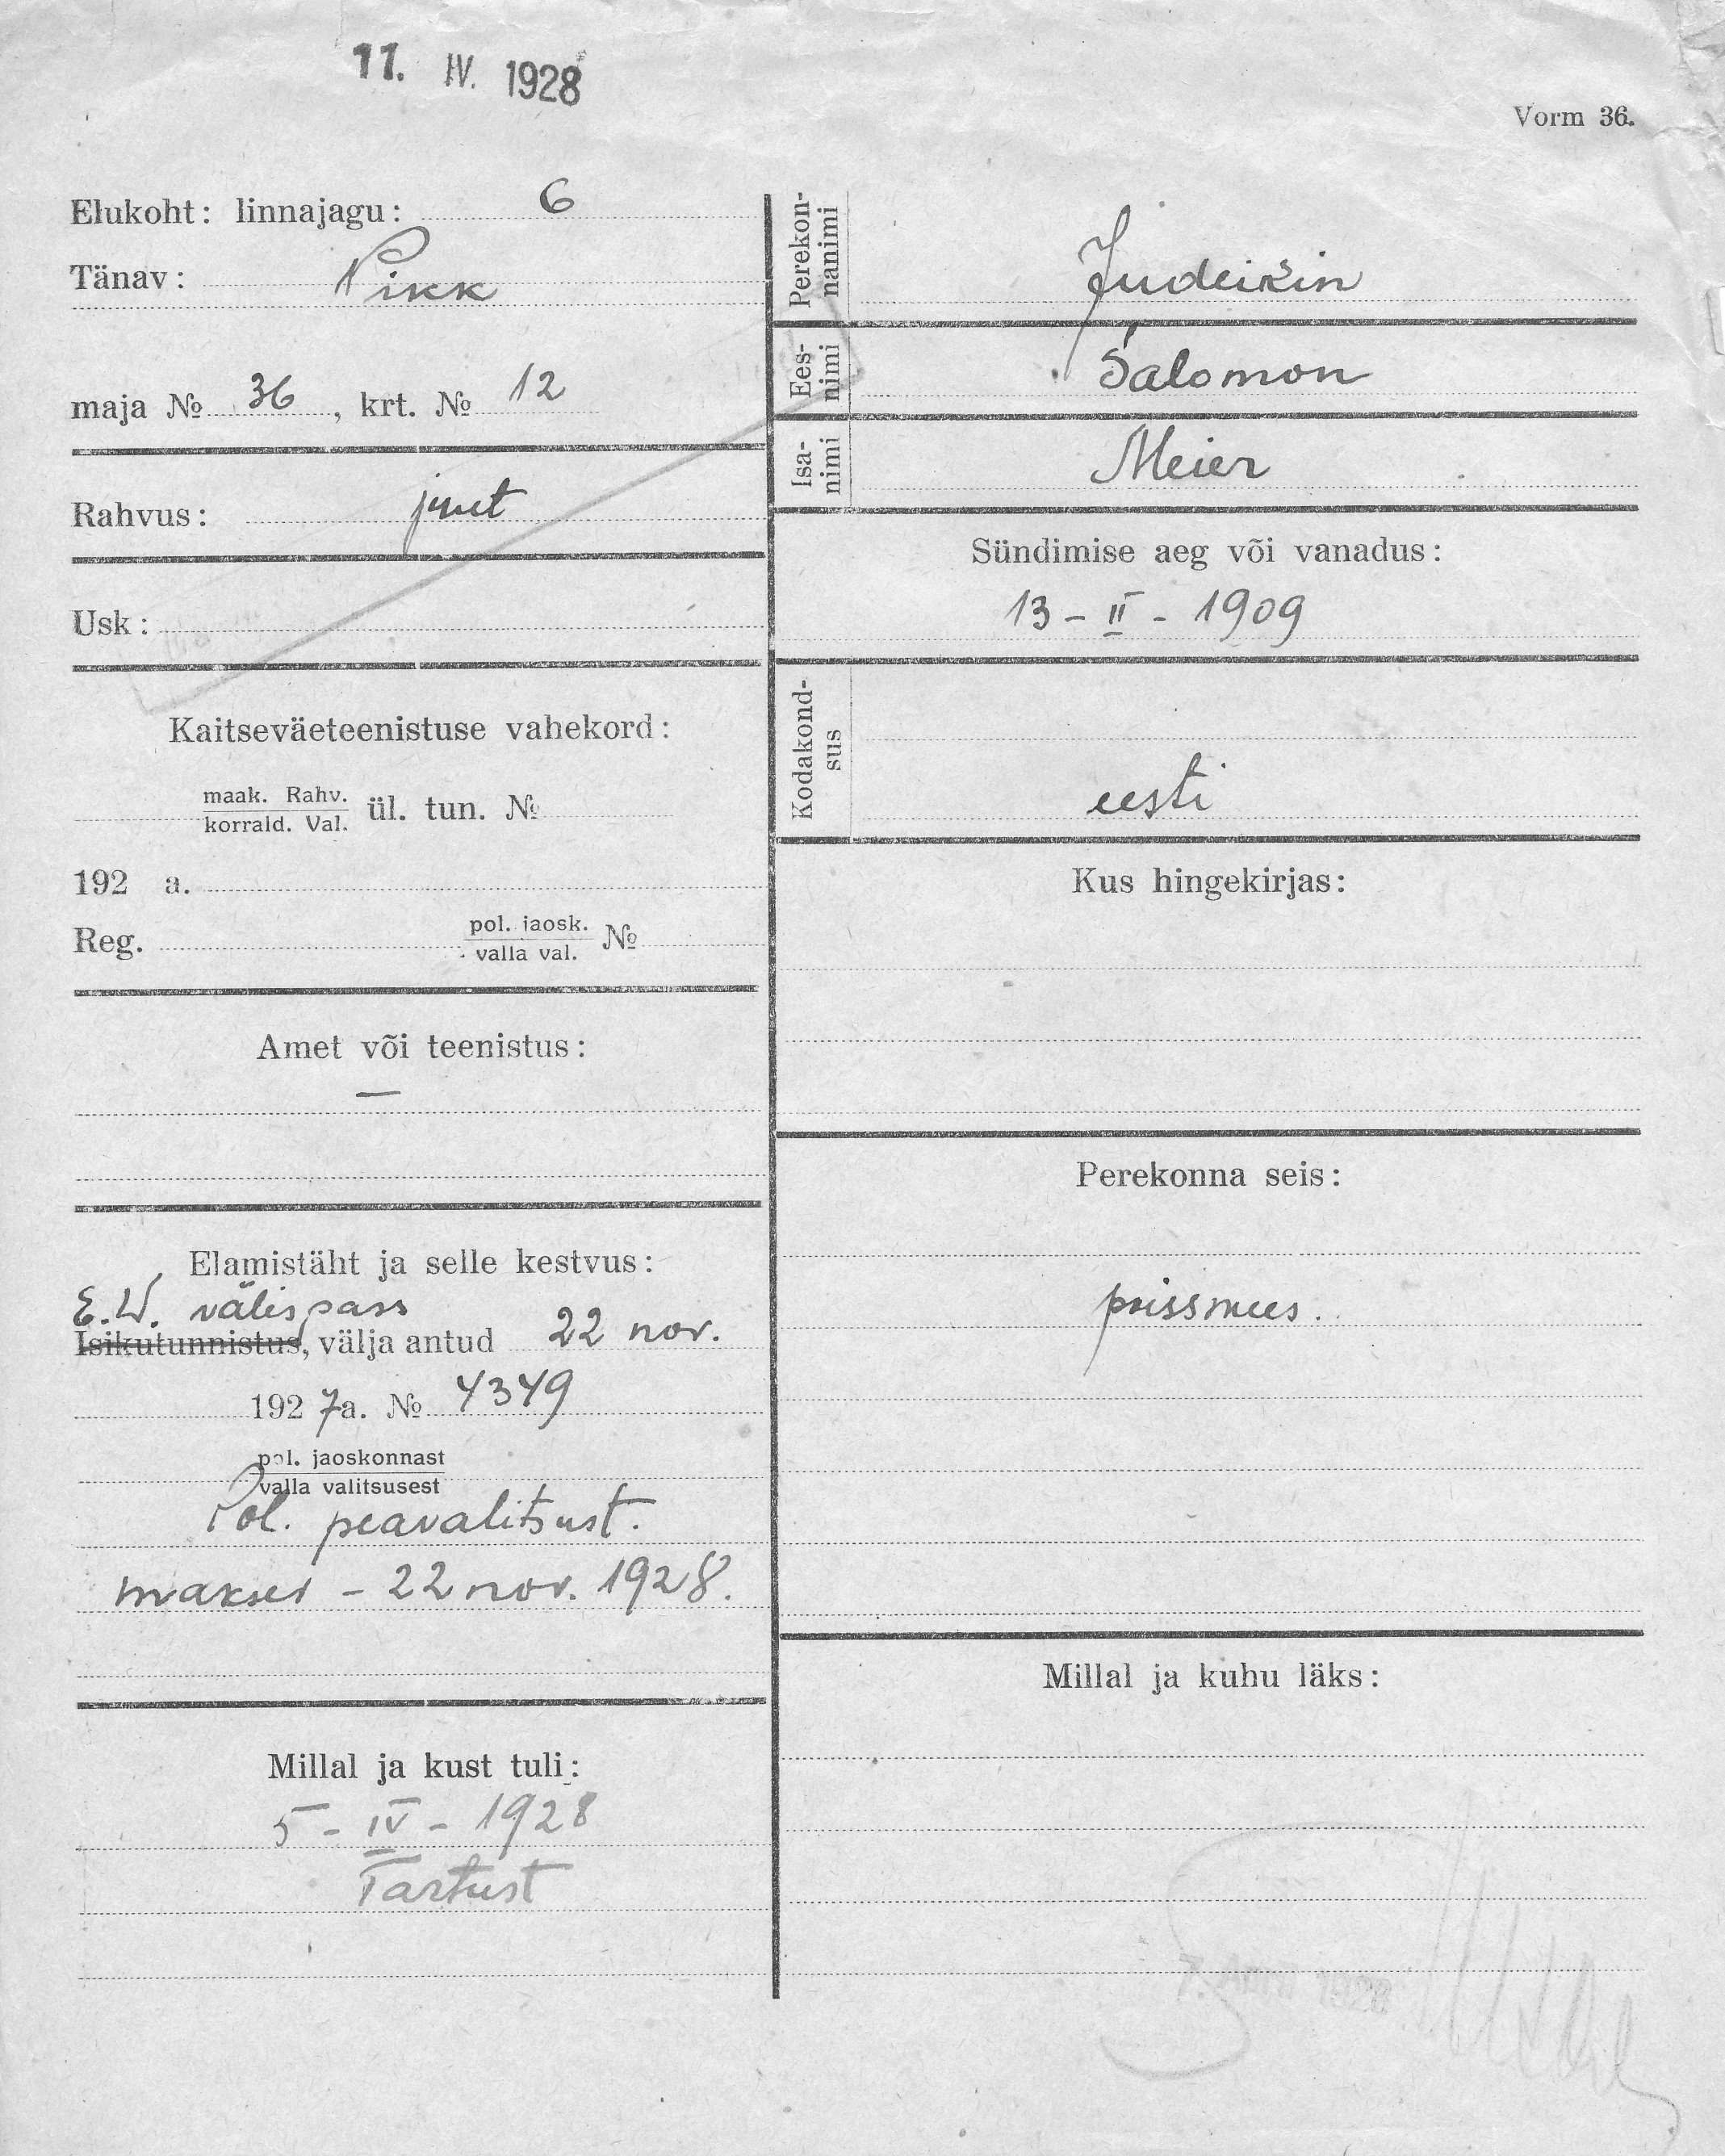 11. IV. 1928
Vorm 36.
Elukoht: linnajagu: 6
Tänav: Pikk
maja № 36, krt. № 12
Rahvus: juut
Usk:
Kaitseväeteenistuse vahekord:
maak. Rahv.
korrald. Val. ül. tun. №
192 a.
Reg. pol. jaosk.
valla val. №
Amet või teenistus:
—
Elamistäht ja selle kestvus:
E.W. välispass
Isikutunnistus, välja antud 22 nov.
1927 a. № 4349
pol. jaoskonnast
valla valitsusest
Pol. peavalitsust.
maksev - 22 nov. 1928.
Millal ja kust tuli:
5 - IV - 1928
Tartust
Perekon-
nanimi Judeikin
Ees-
nimi Salomon
Isa-
nimi Meier
Sündimise aeg või vanadus:
13 - II - 1909
Kodakond-
sus eesti
Kus hingekirjas:
Perekonna seis:
poissmees.
Millal ja kuhu läks: